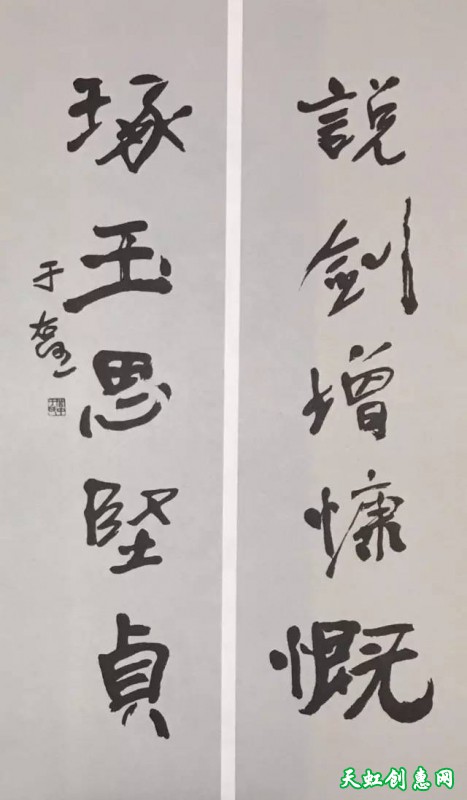 說劍增慷慨
琢玉思堅貞
于右任
天虹创惠网